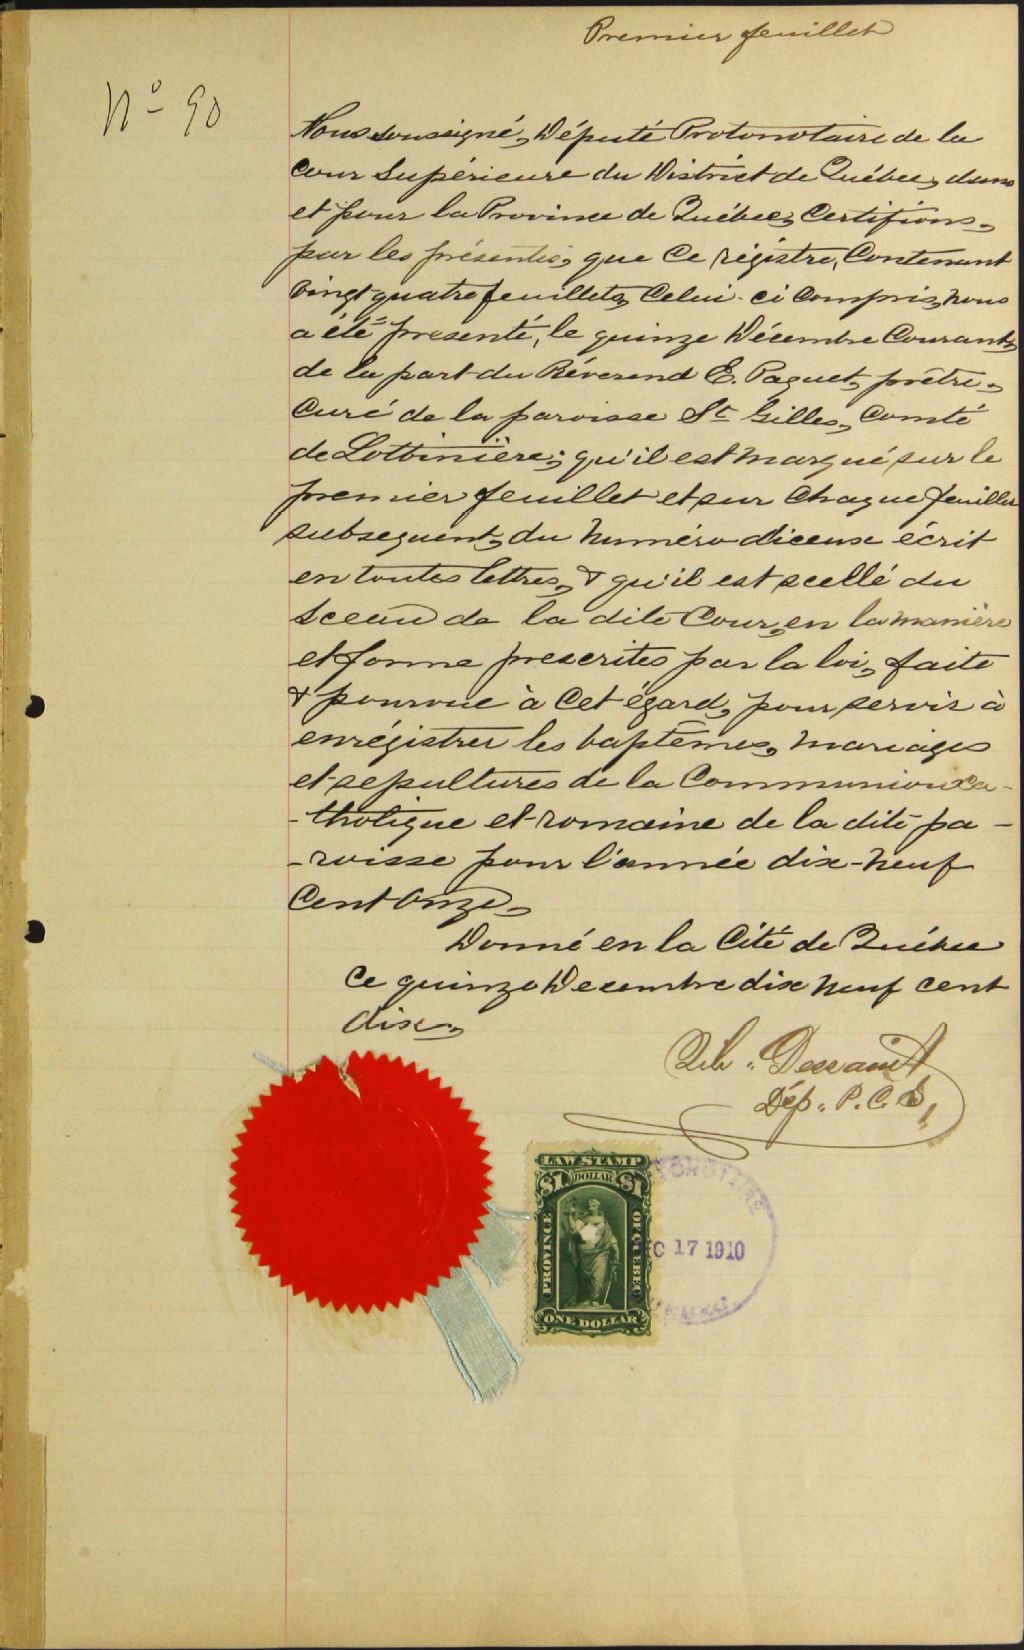 Premier feuillet
No 90
Nous soussigné, Député Protonotaire de la
Cour Supérieure du District de Québec, dans
et pour la Province de Québec, Certifions,
par les présentes, que Ce régistre, Contenant
Vingt quatre feuillets, Celui-ci Compris, nous
a été présenté, le quinze Décembre Courant,
de la part du Révérend E. Paquet, prêtre,
Curé de la paroisse St Gilles, Comté
de Lotbinière; qu'il est marqué sur le
premier feuillet et sur Chaque feuillet
subsequent, du numéro d'iceux écrit
en toutes lettres, & qu'il est scellé du
Sceau de la dite Cour, en la manière
et forme prescrites par la loi, faite
& pourvue à Cet égard, pour servir à
enrégistrer les baptêmes, mariages
et sepultures de la Communion Ca-
-tholique et romaine de la dite pa-
-roisse pour l'année dix-neuf
Cent Onze,
Donné en la Cité de Québec
Ce quinze Decembre dix neuf cent
dix,
Dép. P.C.S.
LAW STAMP
$1 DOLLAR $1
PROVINCE OF QUEBEC
ONE DOLLAR
17 1910